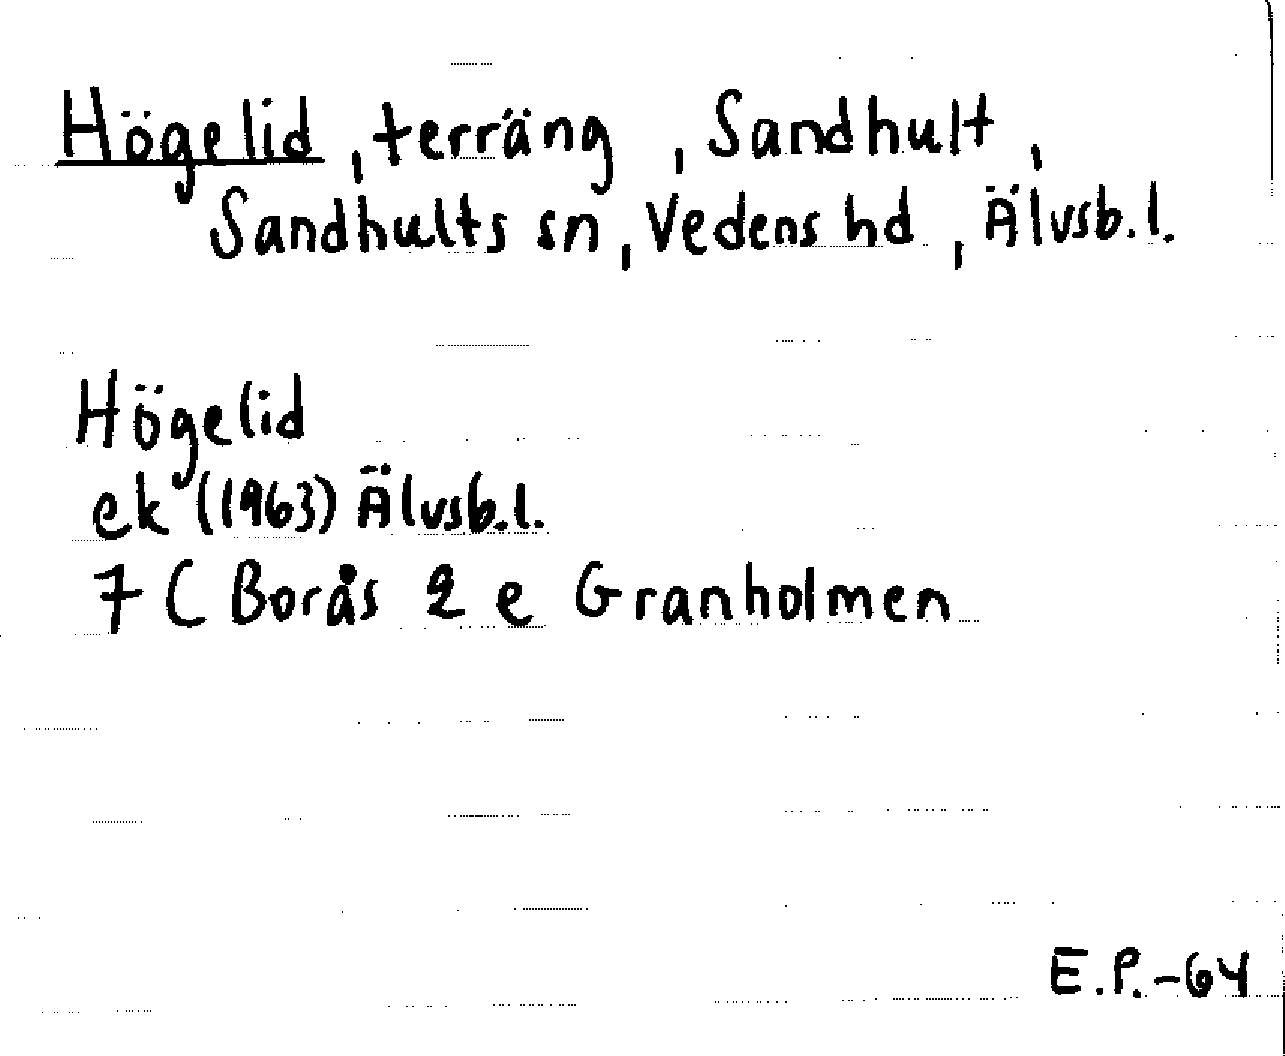 Högelid, terräng, Sandhult,
Sandhults sn, Vedens hd, Älvsb.l.
Högelid
ek (1963) Älvsb.l.
7 C Borås 2 e Granholmen
E.P.-64